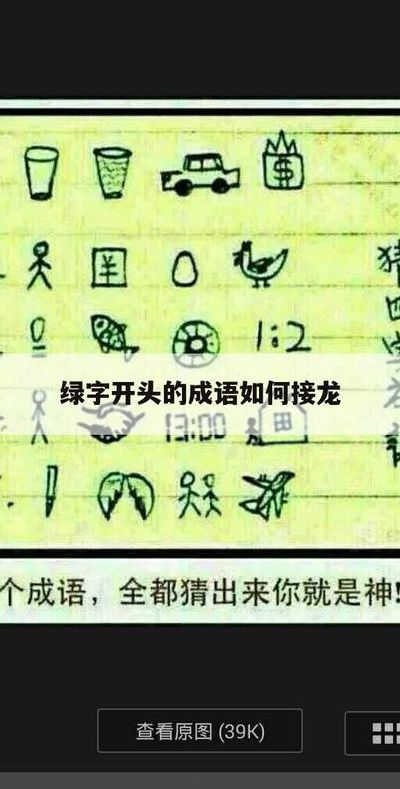 $
羊
1:2
猜四
绿字开头的成语如何接龙
13:00
田
个成语，全都猜出来你就是神
查看原图 (39K)